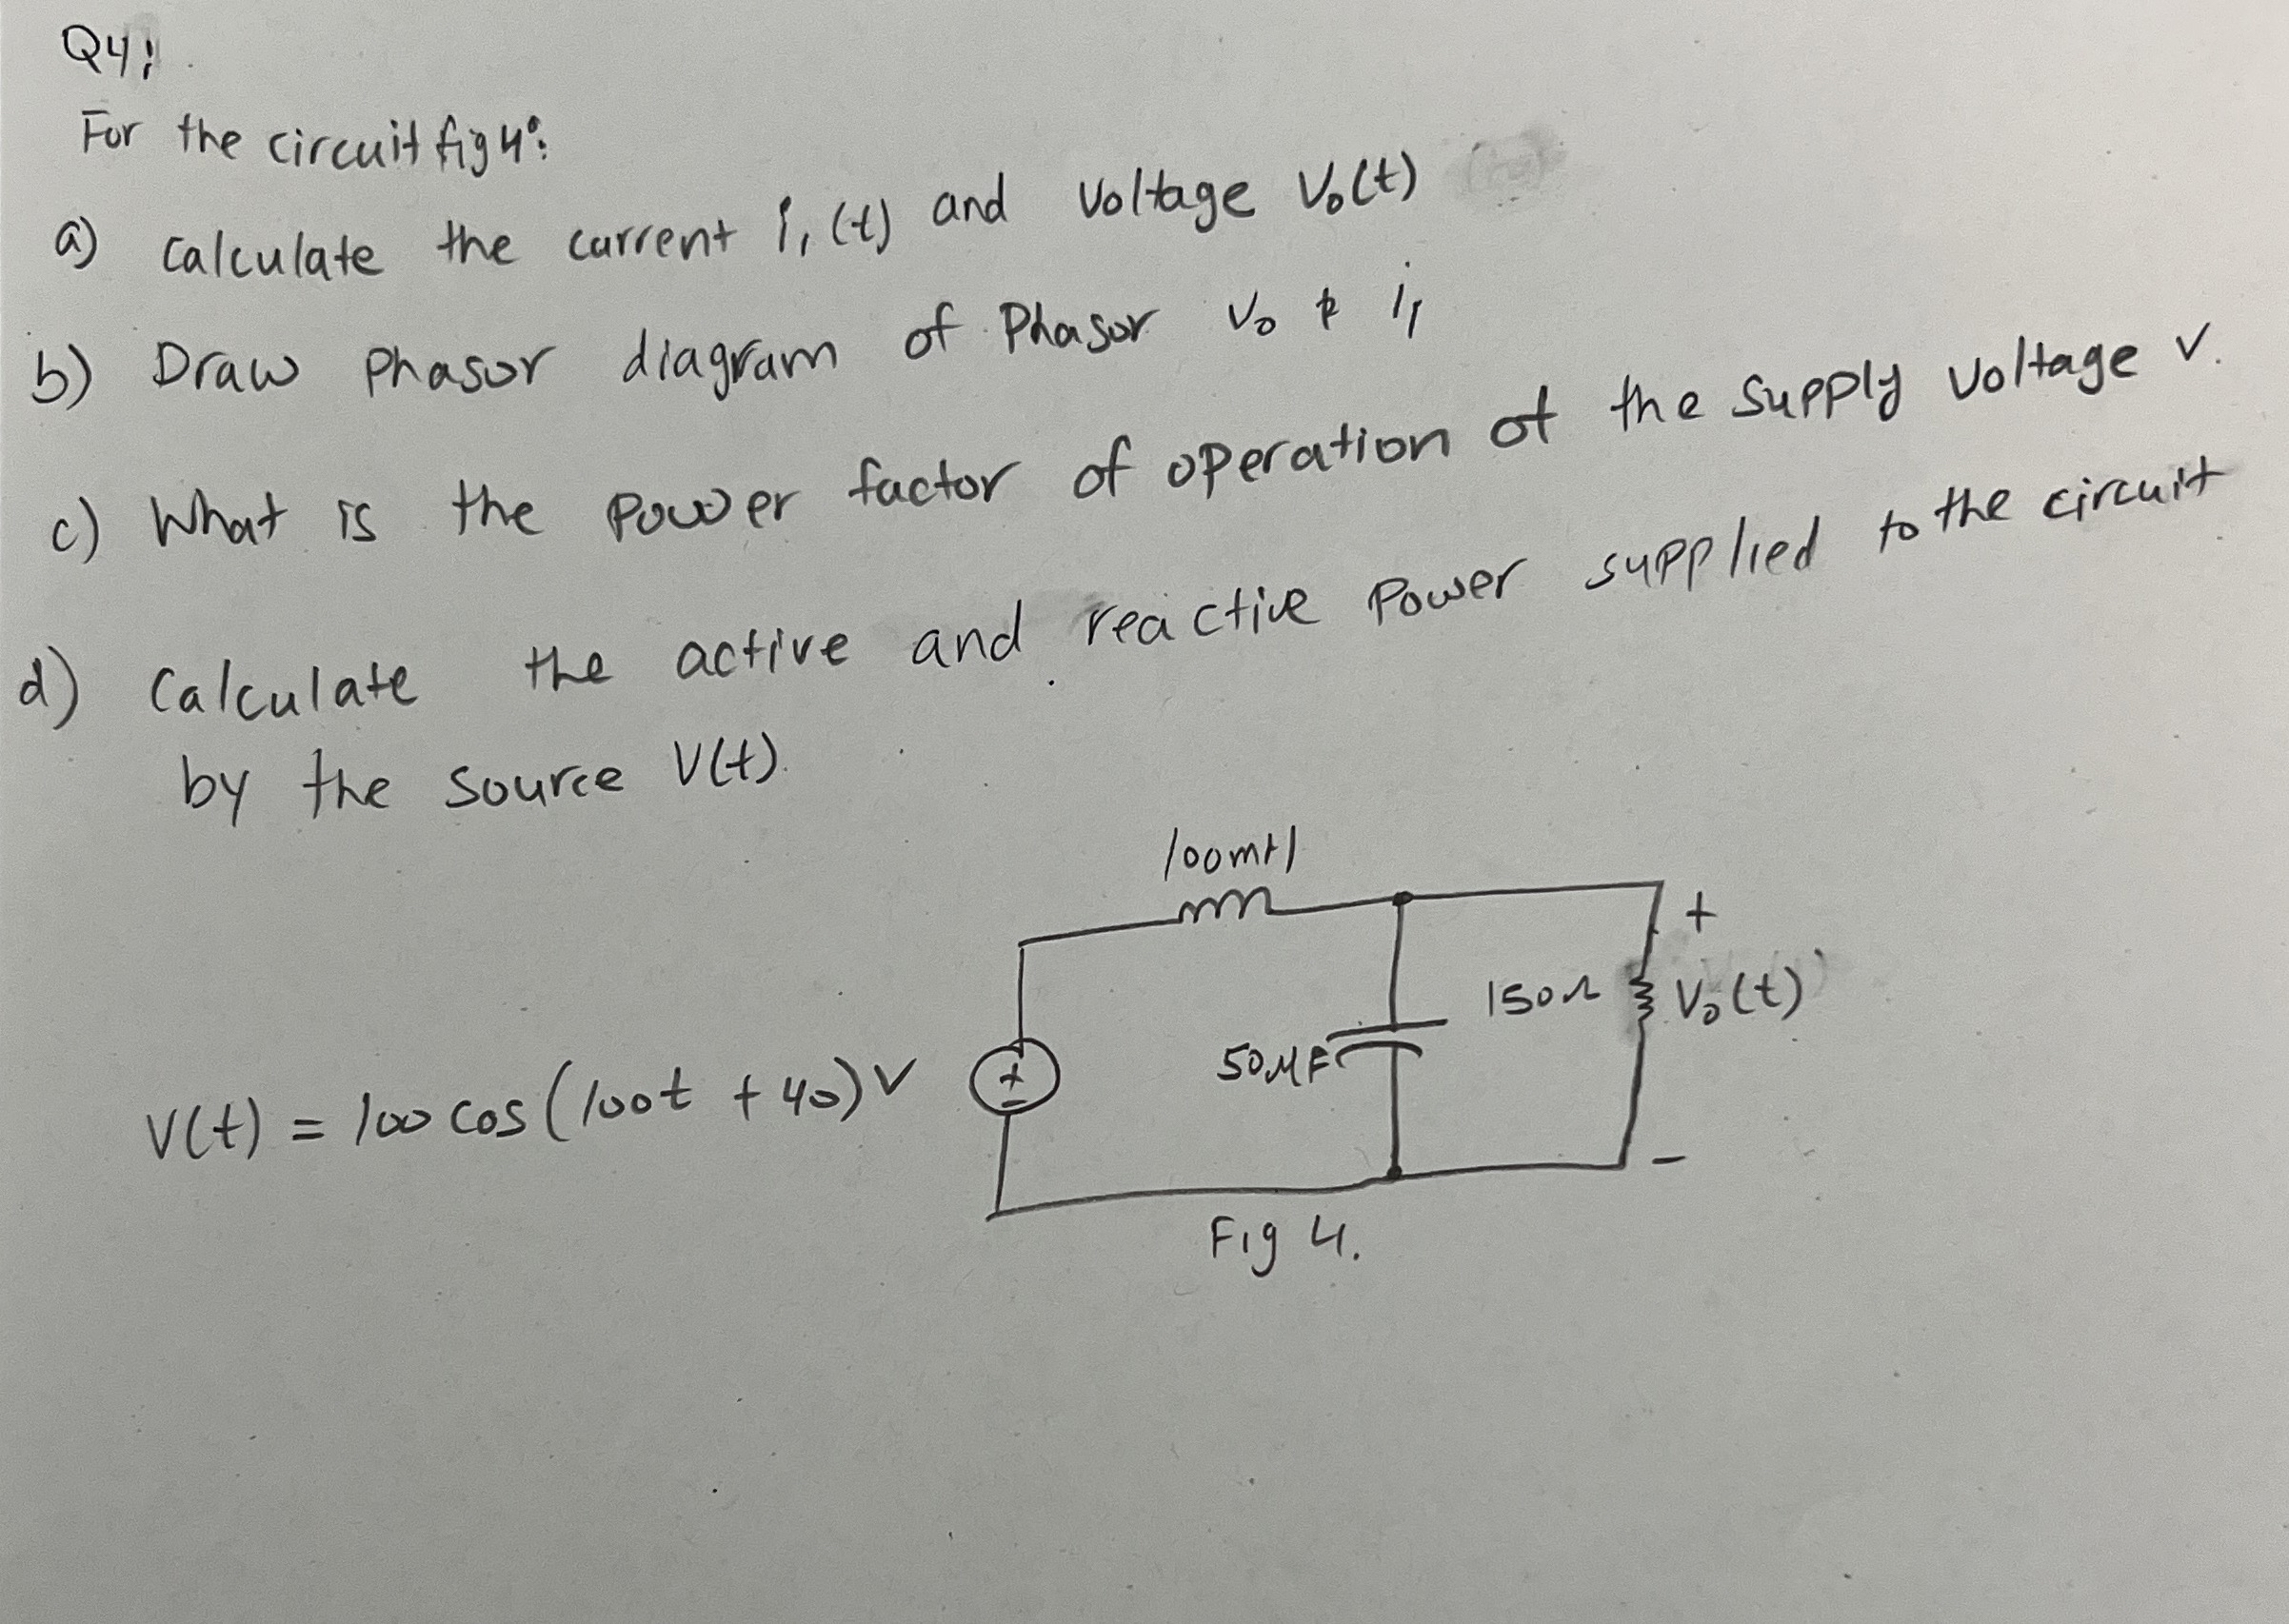 Q4:
For the circuit fig 4:
a) calculate the current i₁(t) and voltage V₀(t)
b) Draw phasor diagram of Phasor V₀ & i₁
c) What is the power factor of operation of the supply voltage V.
d) Calculate the active and reactive power supplied to the circuit
by the source V(t).
100mH
+
150Ω
V₀(t)
50μF
V(t) = 100 cos(100t + 40) V
+
-
-
Fig 4.